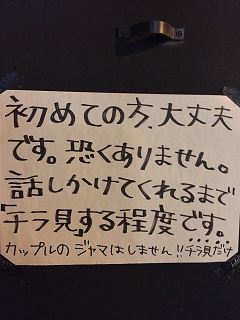 初めての方、大丈夫
です。恐くありません。
話しかけてくれるまで
「チラ見」する程度です。
カップルのジャマはしません!!チラ見だけ